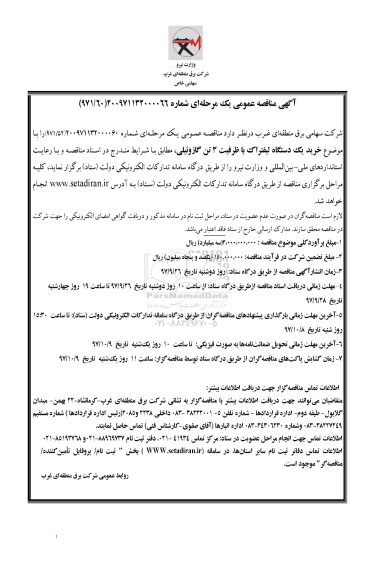 وزارت نیرو
شرکت برق منطقه‌ای غرب
سهامی خاص
آگهی مناقصه عمومی یک مرحله‌ای شماره ۲۰۰۹۷۱۱۳۲۰۰۰۰۶۶(۹۷۱/۶۰)
شرکت سهامی برق منطقه‌ای غرب درنظر دارد مناقصه عمومی یک مرحله‌ای شماره ۲۰۰۹۷۱۱۳۲۰۰۰۰۶۰(۹۷۱/۵۲) را با
موضوع خرید یک دستگاه لیفتراک با ظرفیت ۳ تن گازوئیلی، مطابق با شرایط مندرج در اسناد مناقصه و با رعایت
استانداردهای ملی-بین‌المللی و وزارت نیرو را از طریق درگاه سامانه تدارکات الکترونیکی دولت (ستاد) برگزار نماید، کلیه
مراحل برگزاری مناقصه از طریق درگاه سامانه تدارکات الکترونیکی دولت (ستاد) به آدرس www.setadiran.ir انجام
خواهد شد.
لازم است مناقصه‌گران در صورت عدم عضویت در ستاد، مراحل ثبت نام در سامانه مذکور و دریافت گواهی امضای الکترونیکی را جهت شرکت
در مناقصه محقق سازند. مدارک ارسالی خارج از ستاد فاقد اعتبار می‌باشد.
۱-مبلغ برآوردکلی موضوع مناقصه : ۳،۰۰۰،۰۰۰،۰۰۰(سه میلیارد) ریال
۲- مبلغ تضمین شرکت در فرآیند مناقصه: ۱۵۰،۰۰۰،۰۰۰ (یکصد و پنجاه میلیون) ریال
۳-زمان انتشار آگهی مناقصه از طریق درگاه ستاد: روز دوشنبه تاریخ ۹۷/۹/۲۶
۴- مهلت زمانی دریافت اسناد مناقصه ازطریق درگاه ستاد: از ساعت ۱۰ روز دوشنبه تاریخ ۹۷/۹/۲۶ تا ساعت ۱۹ روز چهارشنبه
تاریخ ۹۷/۹/۲۸
۵-آخرین مهلت زمانی بارگذاری پیشنهادهای مناقصه‌گران از طریق درگاه سامانه تدارکات الکترونیکی دولت (ستاد): تا ساعت ۱۵:۳۰
روز شنبه تاریخ ۹۷/۱۰/۸
۶-آخرین مهلت زمانی تحویل ضمانت‌نامه‌ها به صورت فیزیکی: تا ساعت ۱۰ روز یکشنبه تاریخ ۹۷/۱۰/۹
۷- زمان گشایش پاکت‌های مناقصه‌گران از طریق درگاه ستاد توسط مناقصه‌گزار: ساعت ۱۱ روز یکشنبه تاریخ ۹۷/۱۰/۹
اطلاعات تماس مناقصه‌گزار جهت دریافت اطلاعات بیشتر:
متقاضیان می‌توانند جهت دریافت اطلاعات بیشتر با مناقصه‌گزار به نشانی شرکت برق منطقه‌ای غرب-کرمانشاه-۲۲ بهمن- میدان
گلایول- طبقه دوم- اداره قراردادها – شماره تلفن ۵- ۳۸۲۳۲۰۰۱-۰۸۳ داخلی ۲۲۳۸ و۲۰۸۵(رئیس اداره قراردادها) و شماره مستقیم
۳۸۲۲۷۲۴۹-۰۸۳ وشماره ۳۴۳۰۶۲۳۰-۰۸۳ اداره انبارها (آقای صفوی-کارشناس فنی) تماس حاصل نمایند.
اطلاعات تماس جهت انجام مراحل عضویت در ستاد: مرکز تماس ۴۱۹۳۴ -۰۲۱، دفتر ثبت نام ۸۸۹۶۹۷۳۷-۰۲۱و ۸۵۱۹۳۷۶۸-۰۲۱
اطلاعات تماس دفاتر ثبت نام سایر استان‌ها، در سامانه (WWW.setadiran.ir ) بخش " ثبت نام/ پروفایل تأمین‌کننده/
مناقصه‌گر" موجود است.
روابط عمومی شرکت برق منطقه‌ای غرب
ParsNamadData
۰۲۱-۸۸۳۴۹۶۷۰-۵
۱